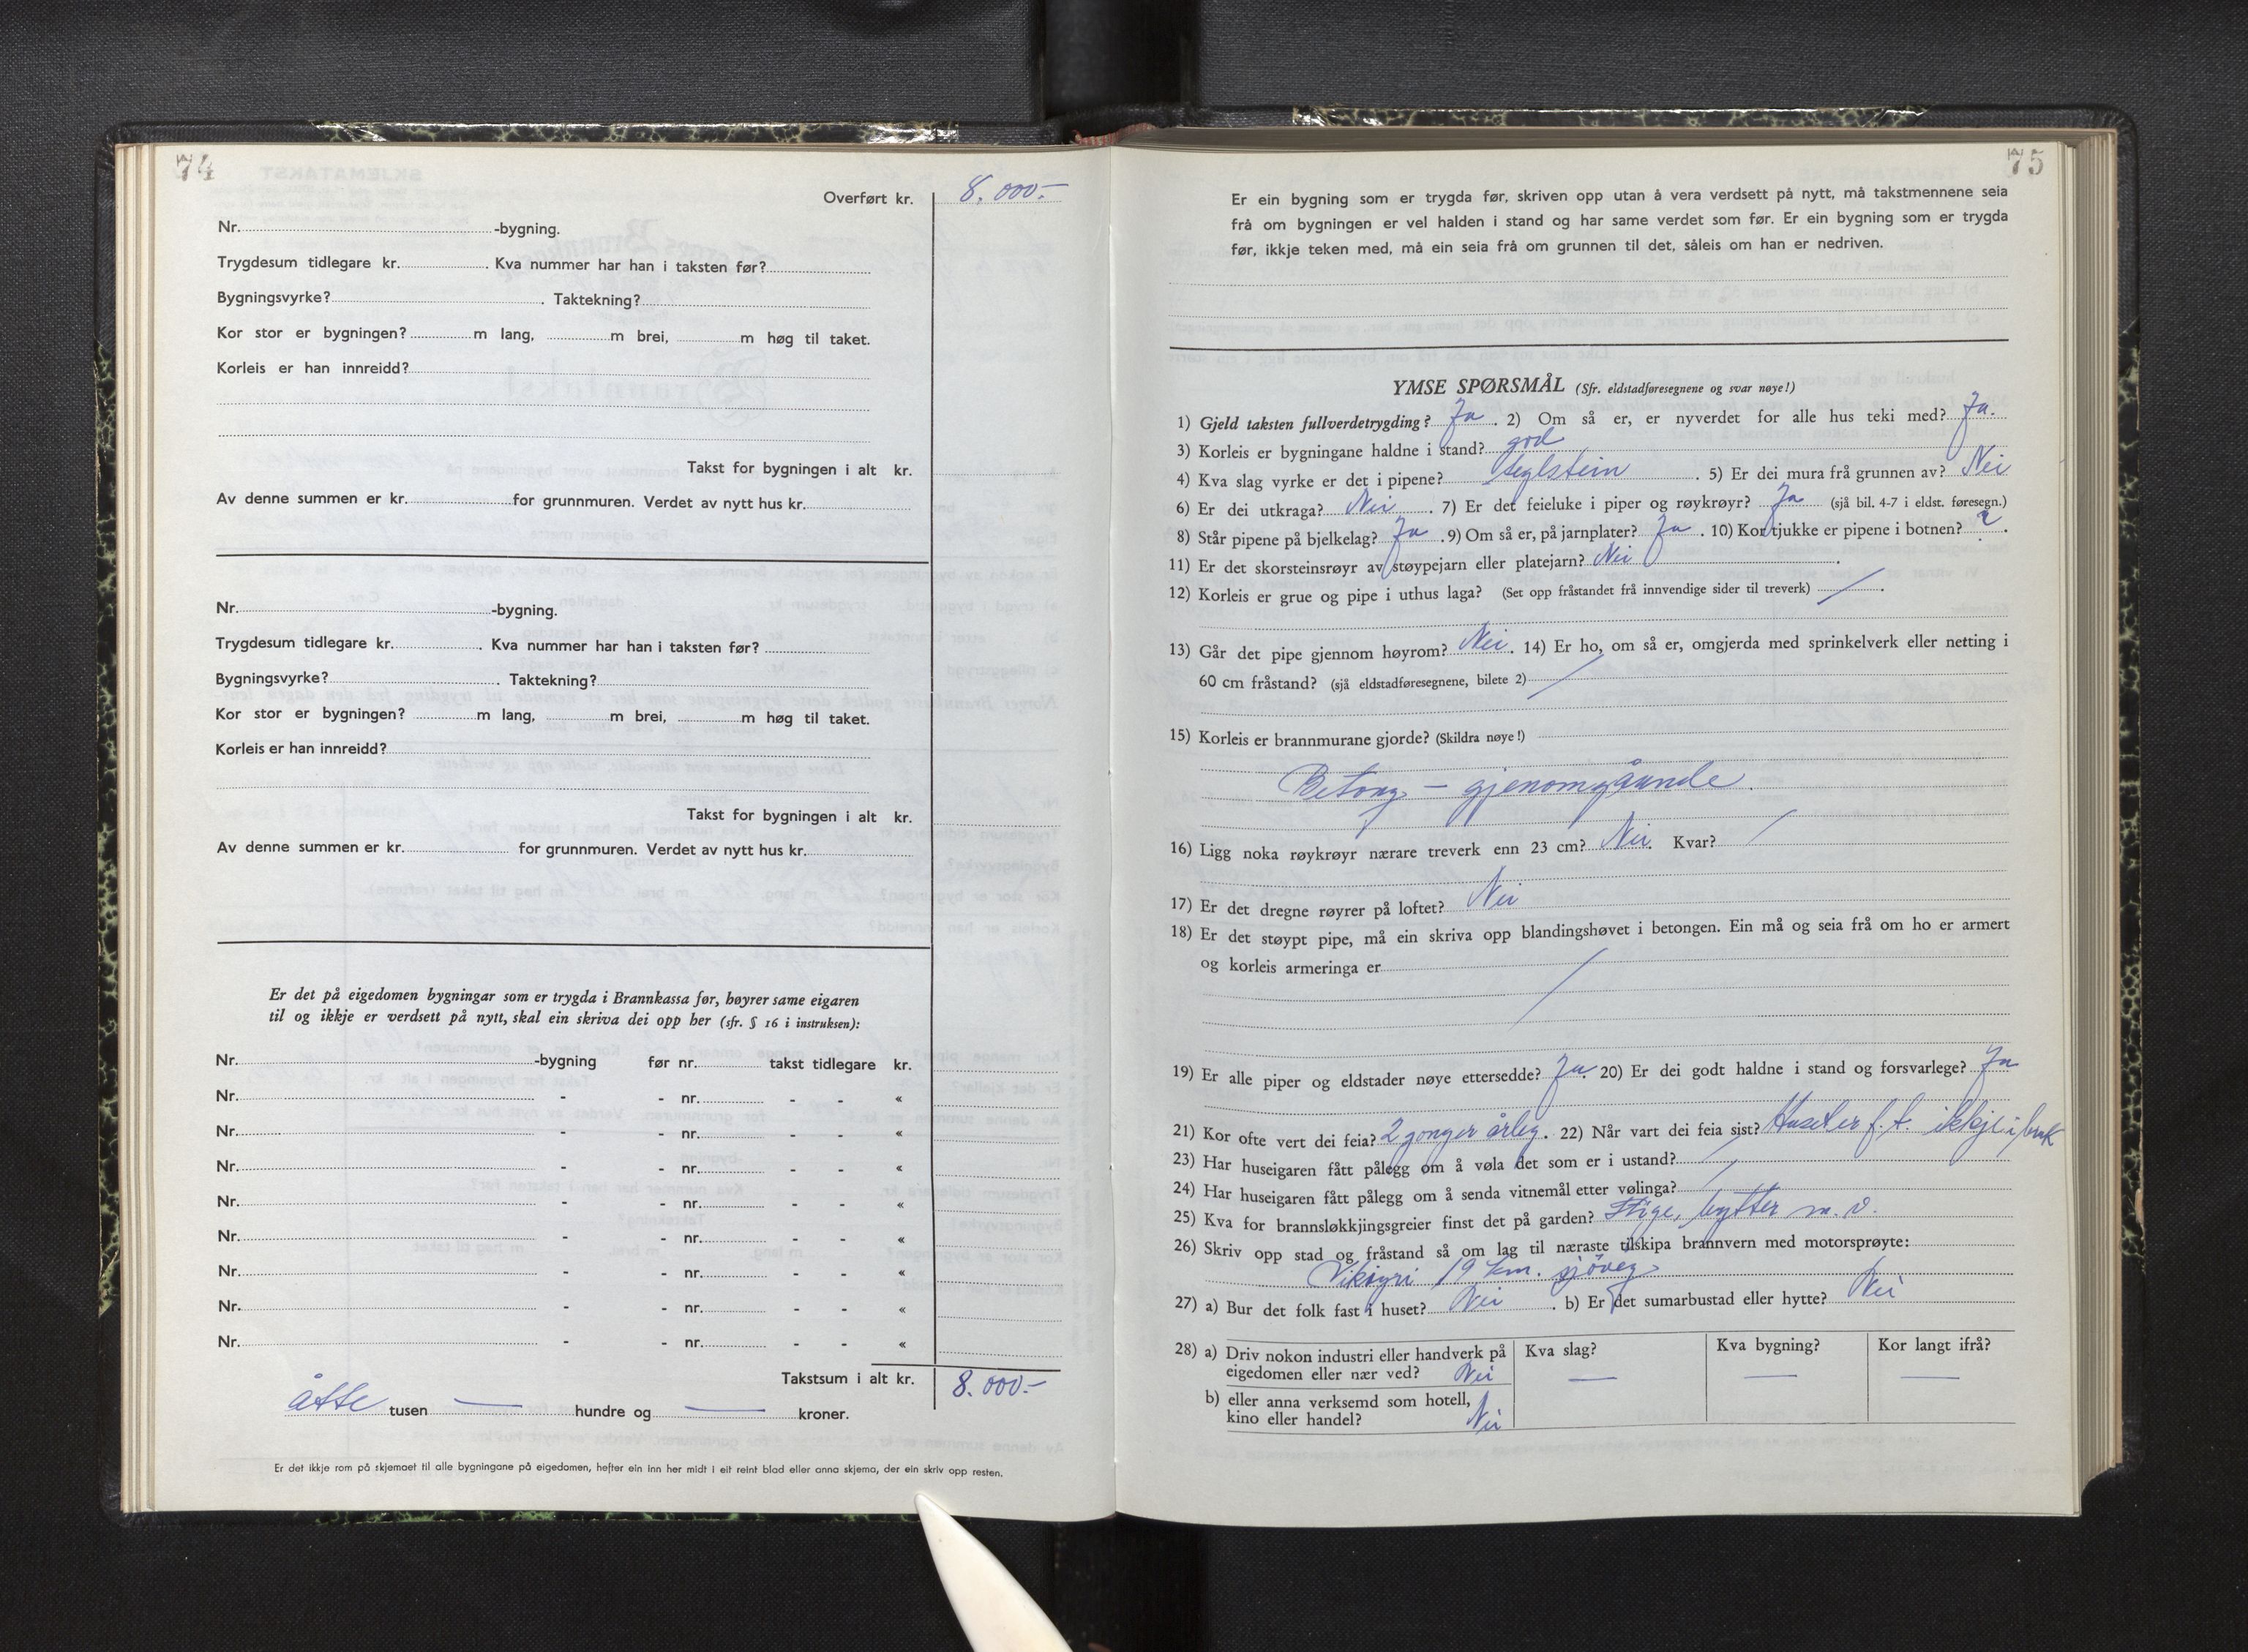 74
Overført kr. 8.000.-
Nr. -bygning.
Trygdesum tidlegare kr. . Kva nummer har han i taksten før?
Bygningsvyrke? . Taktekning?
Kor stor er bygningen? m lang, m brei, m høg til taket.
Korleis er han innreidd?
Takst for bygningen i alt kr.
Av denne summen er kr. for grunnmuren. Verdet av nytt hus kr.
Nr. -bygning.
Trygdesum tidlegare kr. . Kva nummer har han i taksten før?
Bygningsvyrke? . Taktekning?
Kor stor er bygningen? m lang, m brei, m høg til taket.
Korleis er han innreidd?
Takst for bygningen i alt kr.
Av denne summen er kr. for grunnmuren. Verdet av nytt hus kr.
Er det på eigedomen bygningar som er trygda i Brannkassa før, høyrer same eigaren
til og ikkje er verdsett på nytt, skal ein skriva dei opp her (sfr. § 16 i instruksen):
Nr. -bygning før nr. takst tidlegare kr.
Nr. - - nr. - - «
Nr. - - nr. - - «
Nr. - - nr. - - «
Nr. - - nr. - - «
Nr. - - nr. - - «
Nr. - - nr. - - «
Nr. - - nr. - - «
Nr. - - nr. - - «
Takstsum i alt kr. 8.000.-
åtte tusen — hundre og — kroner.
Er det ikkje rom på skjemaet til alle bygningane på eigedomen, hefter ein inn her midt i eit reint blad eller anna skjema, der ein skriv opp resten.
75
Er ein bygning som er trygda før, skriven opp utan å vera verdsett på nytt, må takstmennene seia
frå om bygningen er vel halden i stand og har same verdet som før. Er ein bygning som er trygda
før, ikkje teken med, må ein seia frå om grunnen til det, såleis om han er nedriven.
YMSE SPØRSMÅL (Sfr. eldstadføresegnene og svar nøye!)
1) Gjeld taksten fullverdetrygding? Ja . 2) Om så er, er nyverdet for alle hus teki med? Ja.
3) Korleis er bygningane haldne i stand? god
4) Kva slag vyrke er det i pipene? teglstein . 5) Er dei mura frå grunnen av? Nei
6) Er dei utkraga? Nei . 7) Er det feieluke i piper og røykrøyr? Ja (sjå bil. 4-7 i eldst. føresegn.)
8) Står pipene på bjelkelag? Ja . 9) Om så er, på jarnplater? Ja . 10) Kor tjukke er pipene i botnen? ? .
11) Er det skorsteinsrøyr av støypejarn eller platejarn? Nei .
12) Korleis er grue og pipe i uthus laga? (Set opp fråstandet frå innvendige sider til treverk) / .
13) Går det pipe gjennom høyrom? Nei. 14) Er ho, om så er, omgjerda med sprinkelverk eller netting i
60 cm fråstand? (sjå eldstadføresegnene, bilete 2) /
15) Korleis er brannmurane gjorde? (Skildra nøye!)
Betong — gjenomgåande.
16) Ligg noka røykrøyr nærare treverk enn 23 cm? Nei. Kvar? /
17) Er det dregne røyrer på loftet? Nei
18) Er det støypt pipe, må ein skriva opp blandingshøvet i betongen. Ein må og seia frå om ho er armert
og korleis armeringa er /
19) Er alle piper og eldstader nøye ettersedde? Ja. 20) Er dei godt haldne i stand og forsvarlege? Ja
21) Kor ofte vert dei feia? 2 gonger årleg . 22) Når vart dei feia sist? Huset er f.t. ikkje i bruk
23) Har huseigaren fått pålegg om å vøla det som er i ustand? /
24) Har huseigaren fått pålegg om å senda vitnemål etter vølinga? /
25) Kva for brannsløkkjingsgreier finst det på garden? Stige, bytter m.v.
26) Skriv opp stad og fråstand så om lag til næraste tilskipa brannvern med motorsprøyte:
Vikøyri 19 km. sjøveg
27) a) Bur det folk fast i huset? Nei . b) Er det sumarbustad eller hytte? Nei
28) a) Driv nokon industri eller handverk på Kva slag? Kva bygning? Kor langt ifrå?
eigedomen eller nær ved? Nei — — —
b) eller anna verksemd som hotell,
kino eller handel? Nei